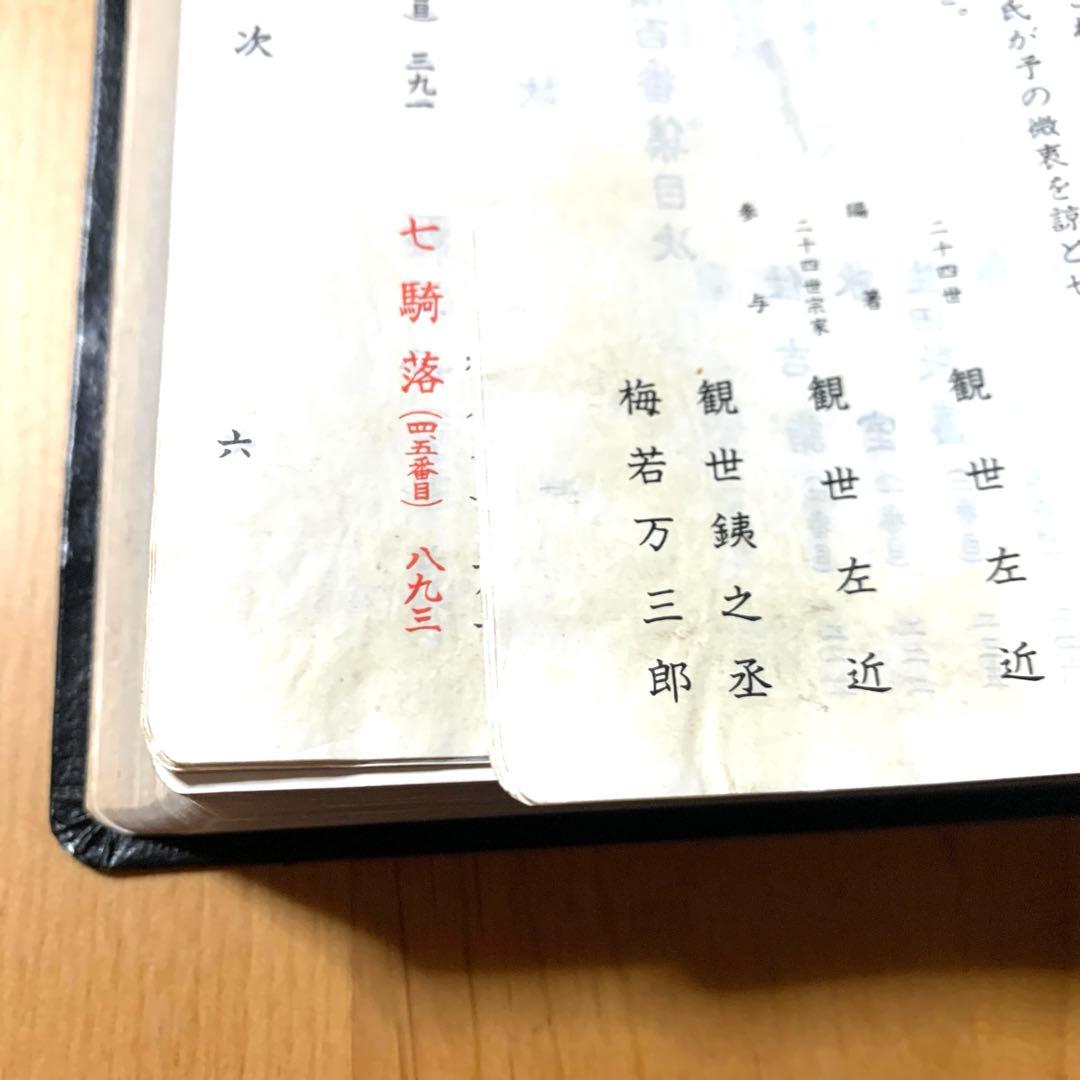 氏が予の微衷を諒とせ
二十四世
観世左近
著
二十四世宗家
観世左近
参与
観世銕之丞
梅若万三郎
三九一
七騎落（四、五番目）　八九三
次
六